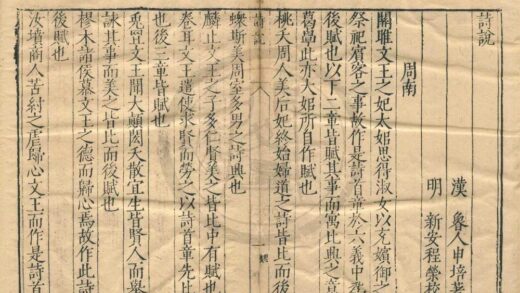 詩說
漢 魯人申培著
明 新安程榮校
周南
關雎文王之妃太姒思得淑女以充嬪御之
祭祀賓客之事故作是詩首章於六義中
後賦也以下二章皆賦其事而寓比興之
葛覃此亦大姒所自作賦也
桃夭周人美后妃終始婦道之詩皆比而後
詩說
一
螽斯美周室多男之詩興也
麟止文王之子多仁賢美之皆比中有賦也
卷耳文王遣使求賢而勞之以詩首章先比
也後三章皆賦也
兔罝文王聞太顛閎夭散宜生皆賢人而舉
詠其事而美之皆比而後賦也
樛木諸侯慕文王之德而歸心焉故作此詩
後賦也
汝墳商人苦紂之虐歸心文王而作是詩首